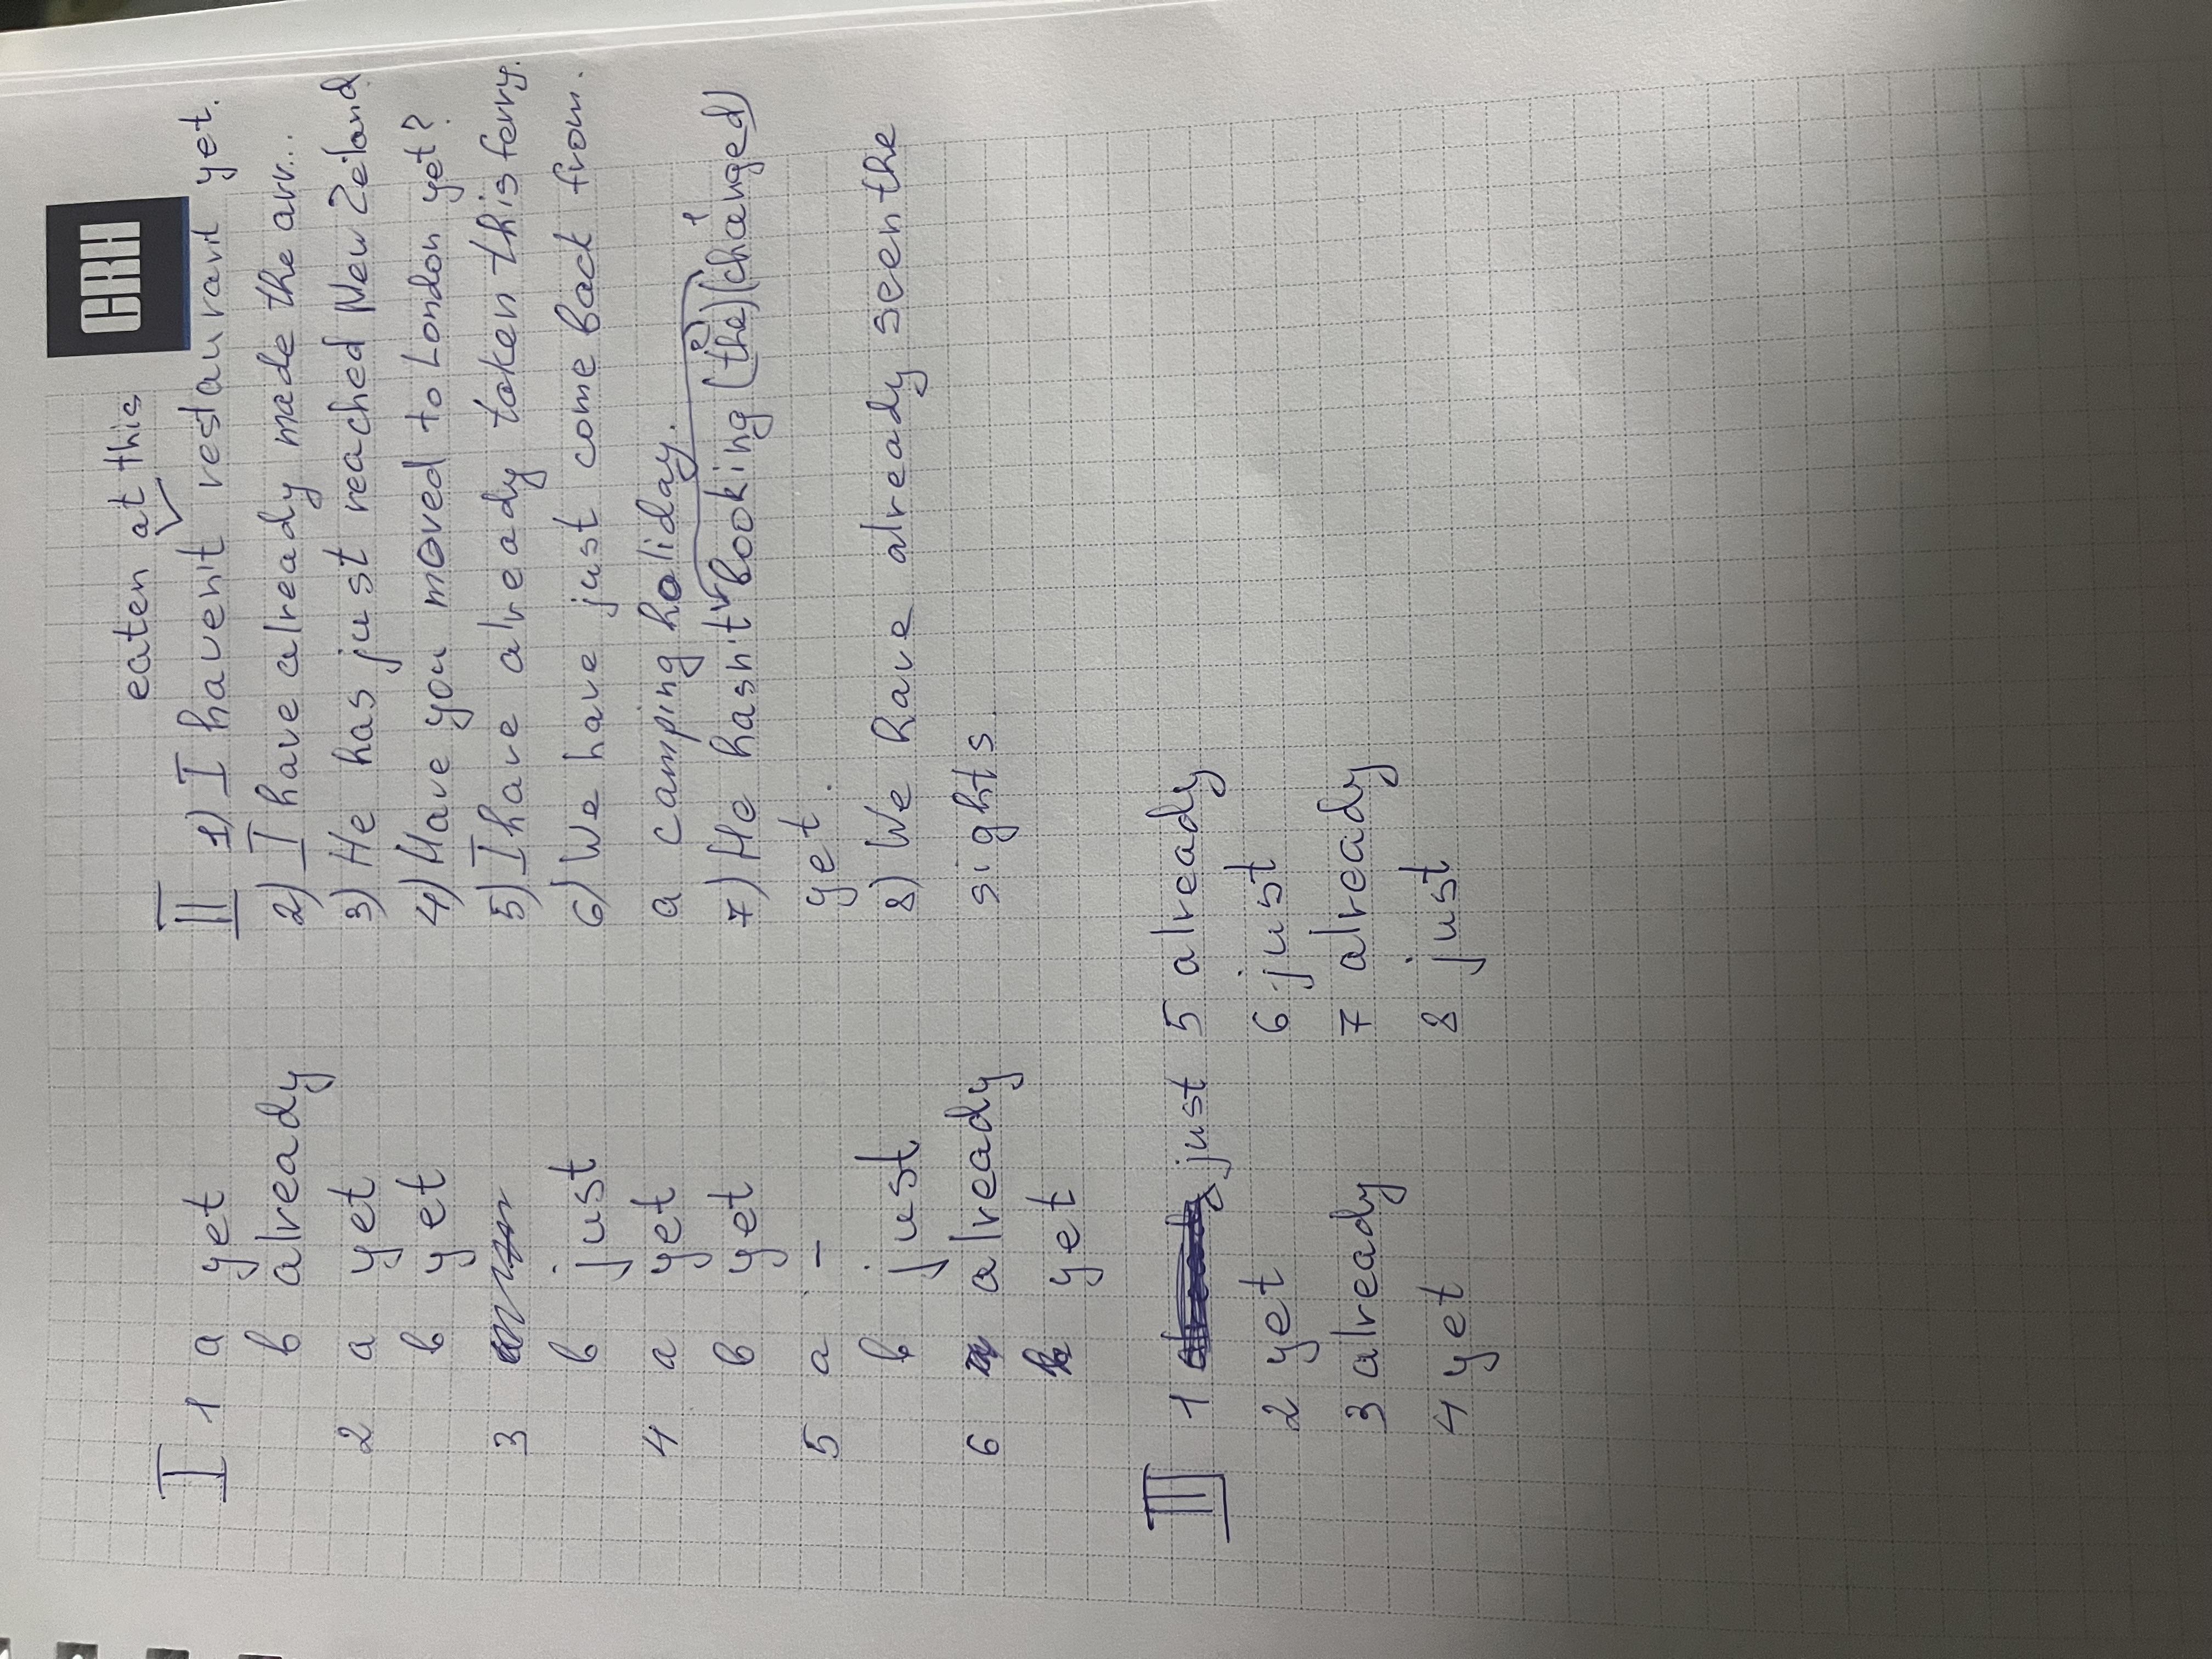 CRH
I 1 a yet
b already
2 a yet
b yet
3
b just
4 a yet
b yet
5 a –
b just
6 a already
b yet
eaten at this
II 1) I haven't restaurant yet.
2) I have already made the arr...
3) He has just reached New Zeiland
4) Have you moved to London yet?
5) I have already taken this ferry.
6) We have just come back from.
a camping holiday.
2 1
7) He hasn't booking (the) (changed)
yet.
8) We have already seen the
sights
III 1 just
2 yet
3 already
4 yet
5 already
6 just
7 already
8 just